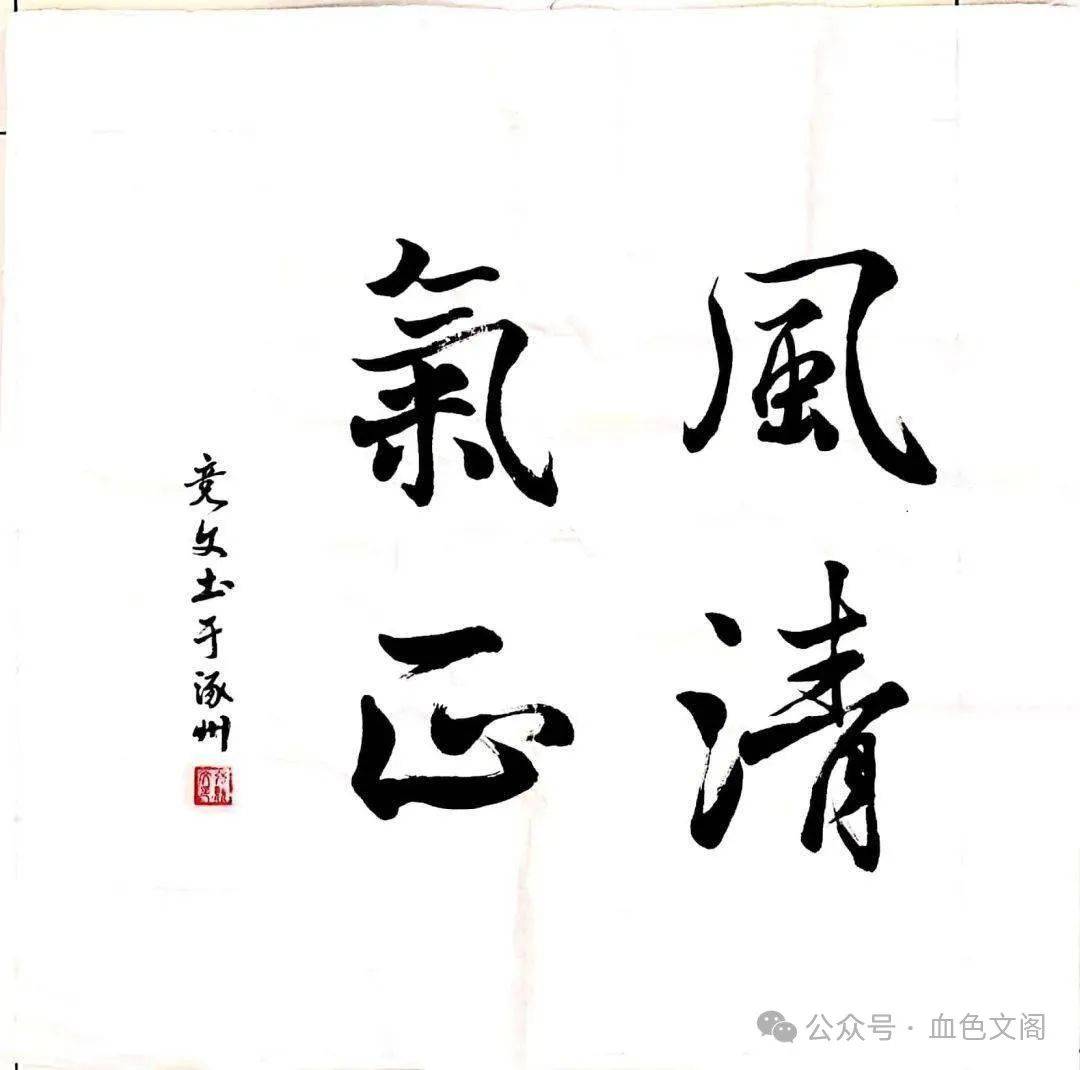 風清
氣正
竞文书于涿州
公众号·血色文阁